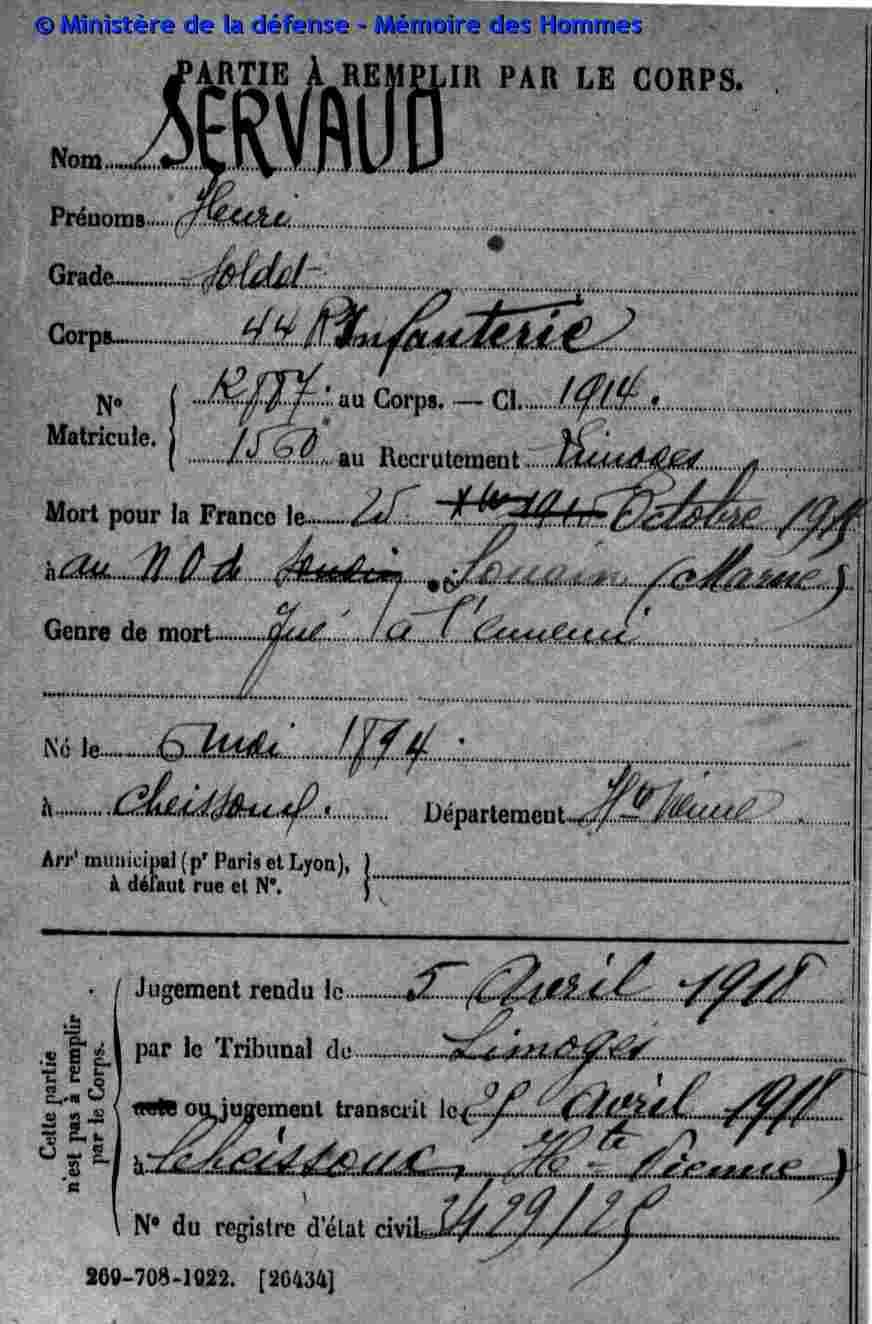 © Ministère de la défense - Mémoire des Hommes
PARTIE À REMPLIR PAR LE CORPS.
Nom SERVAUD
Prénoms Henri
Grade Soldat
Corps 44 R Infanterie
N° Matricule. 12887 au Corps. — Cl. 1914.
1560 au Recrutement Limoges
Mort pour la France le 25 Octobre 1915
à au NO de Souain Souain (Marne)
Genre de mort Tué à l'ennemi
Né le 6 mai 1894.
à Cheissoux. Département Hte Vienne
Arrt municipal (pr Paris et Lyon),
à défaut rue et N°.
Cette partie n'est pas à remplir par le Corps.
Jugement rendu le 5 Avril 1918
par le Tribunal de Limoges
acte ou jugement transcrit le 25 Avril 1918
à Cheissoux, Hte Vienne)
N° du registre d'état civil 2429/25
269-708-1922. [26434]